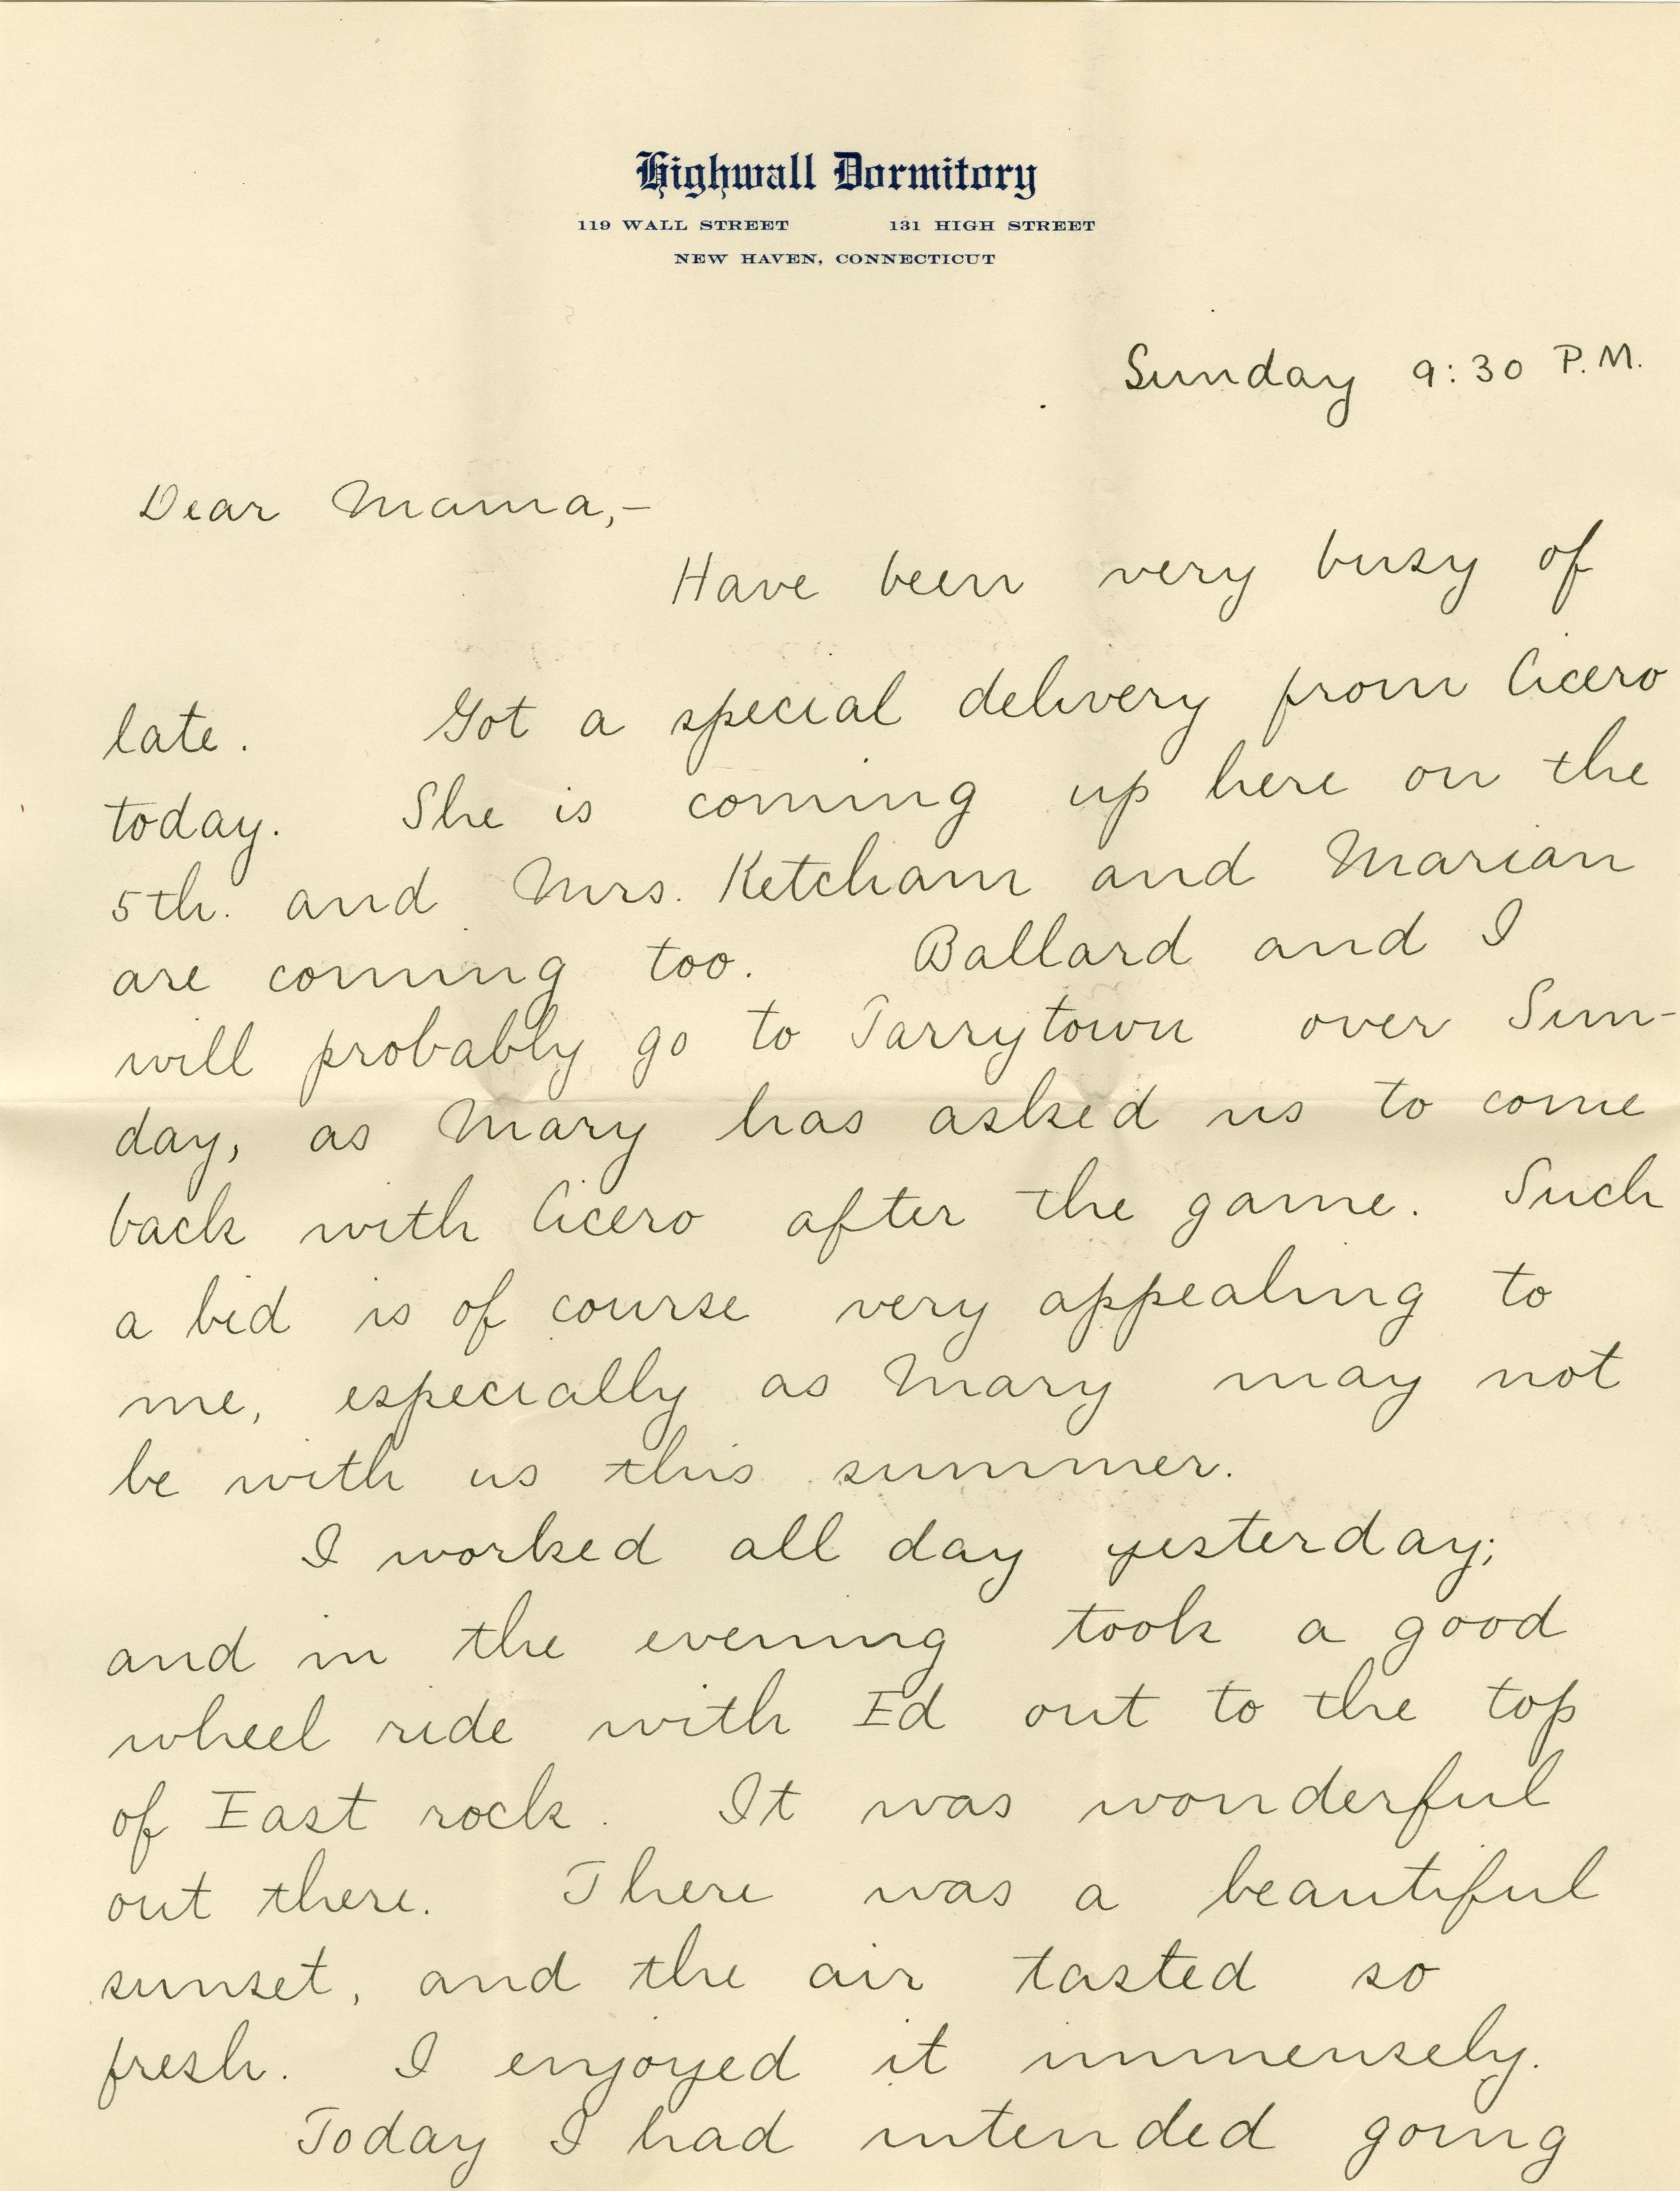 Highwall Dormitory
119 WALL STREET 131 HIGH STREET
NEW HAVEN, CONNECTICUT
Sunday 9:30 P.M.
Dear Mama,-
Have been very busy of
late. Got a special delivery from Cicero
today. She is coming up here on the
5th. and Mrs. Ketcham and Marian
are coming too. Ballard and I
will probably go to Tarrytown over Sun-
day, as Mary has asked us to come
back with Cicero after the game. Such
a bid is of course very appealing to
me, especially as Mary may not
be with us this summer.
I worked all day yesterday;
and in the evening took a good
wheel ride with Ed out to the top
of East rock. It was wonderful
out there. There was a beautiful
sunset, and the air tasted so
fresh. I enjoyed it immensely.
Today I had intended going